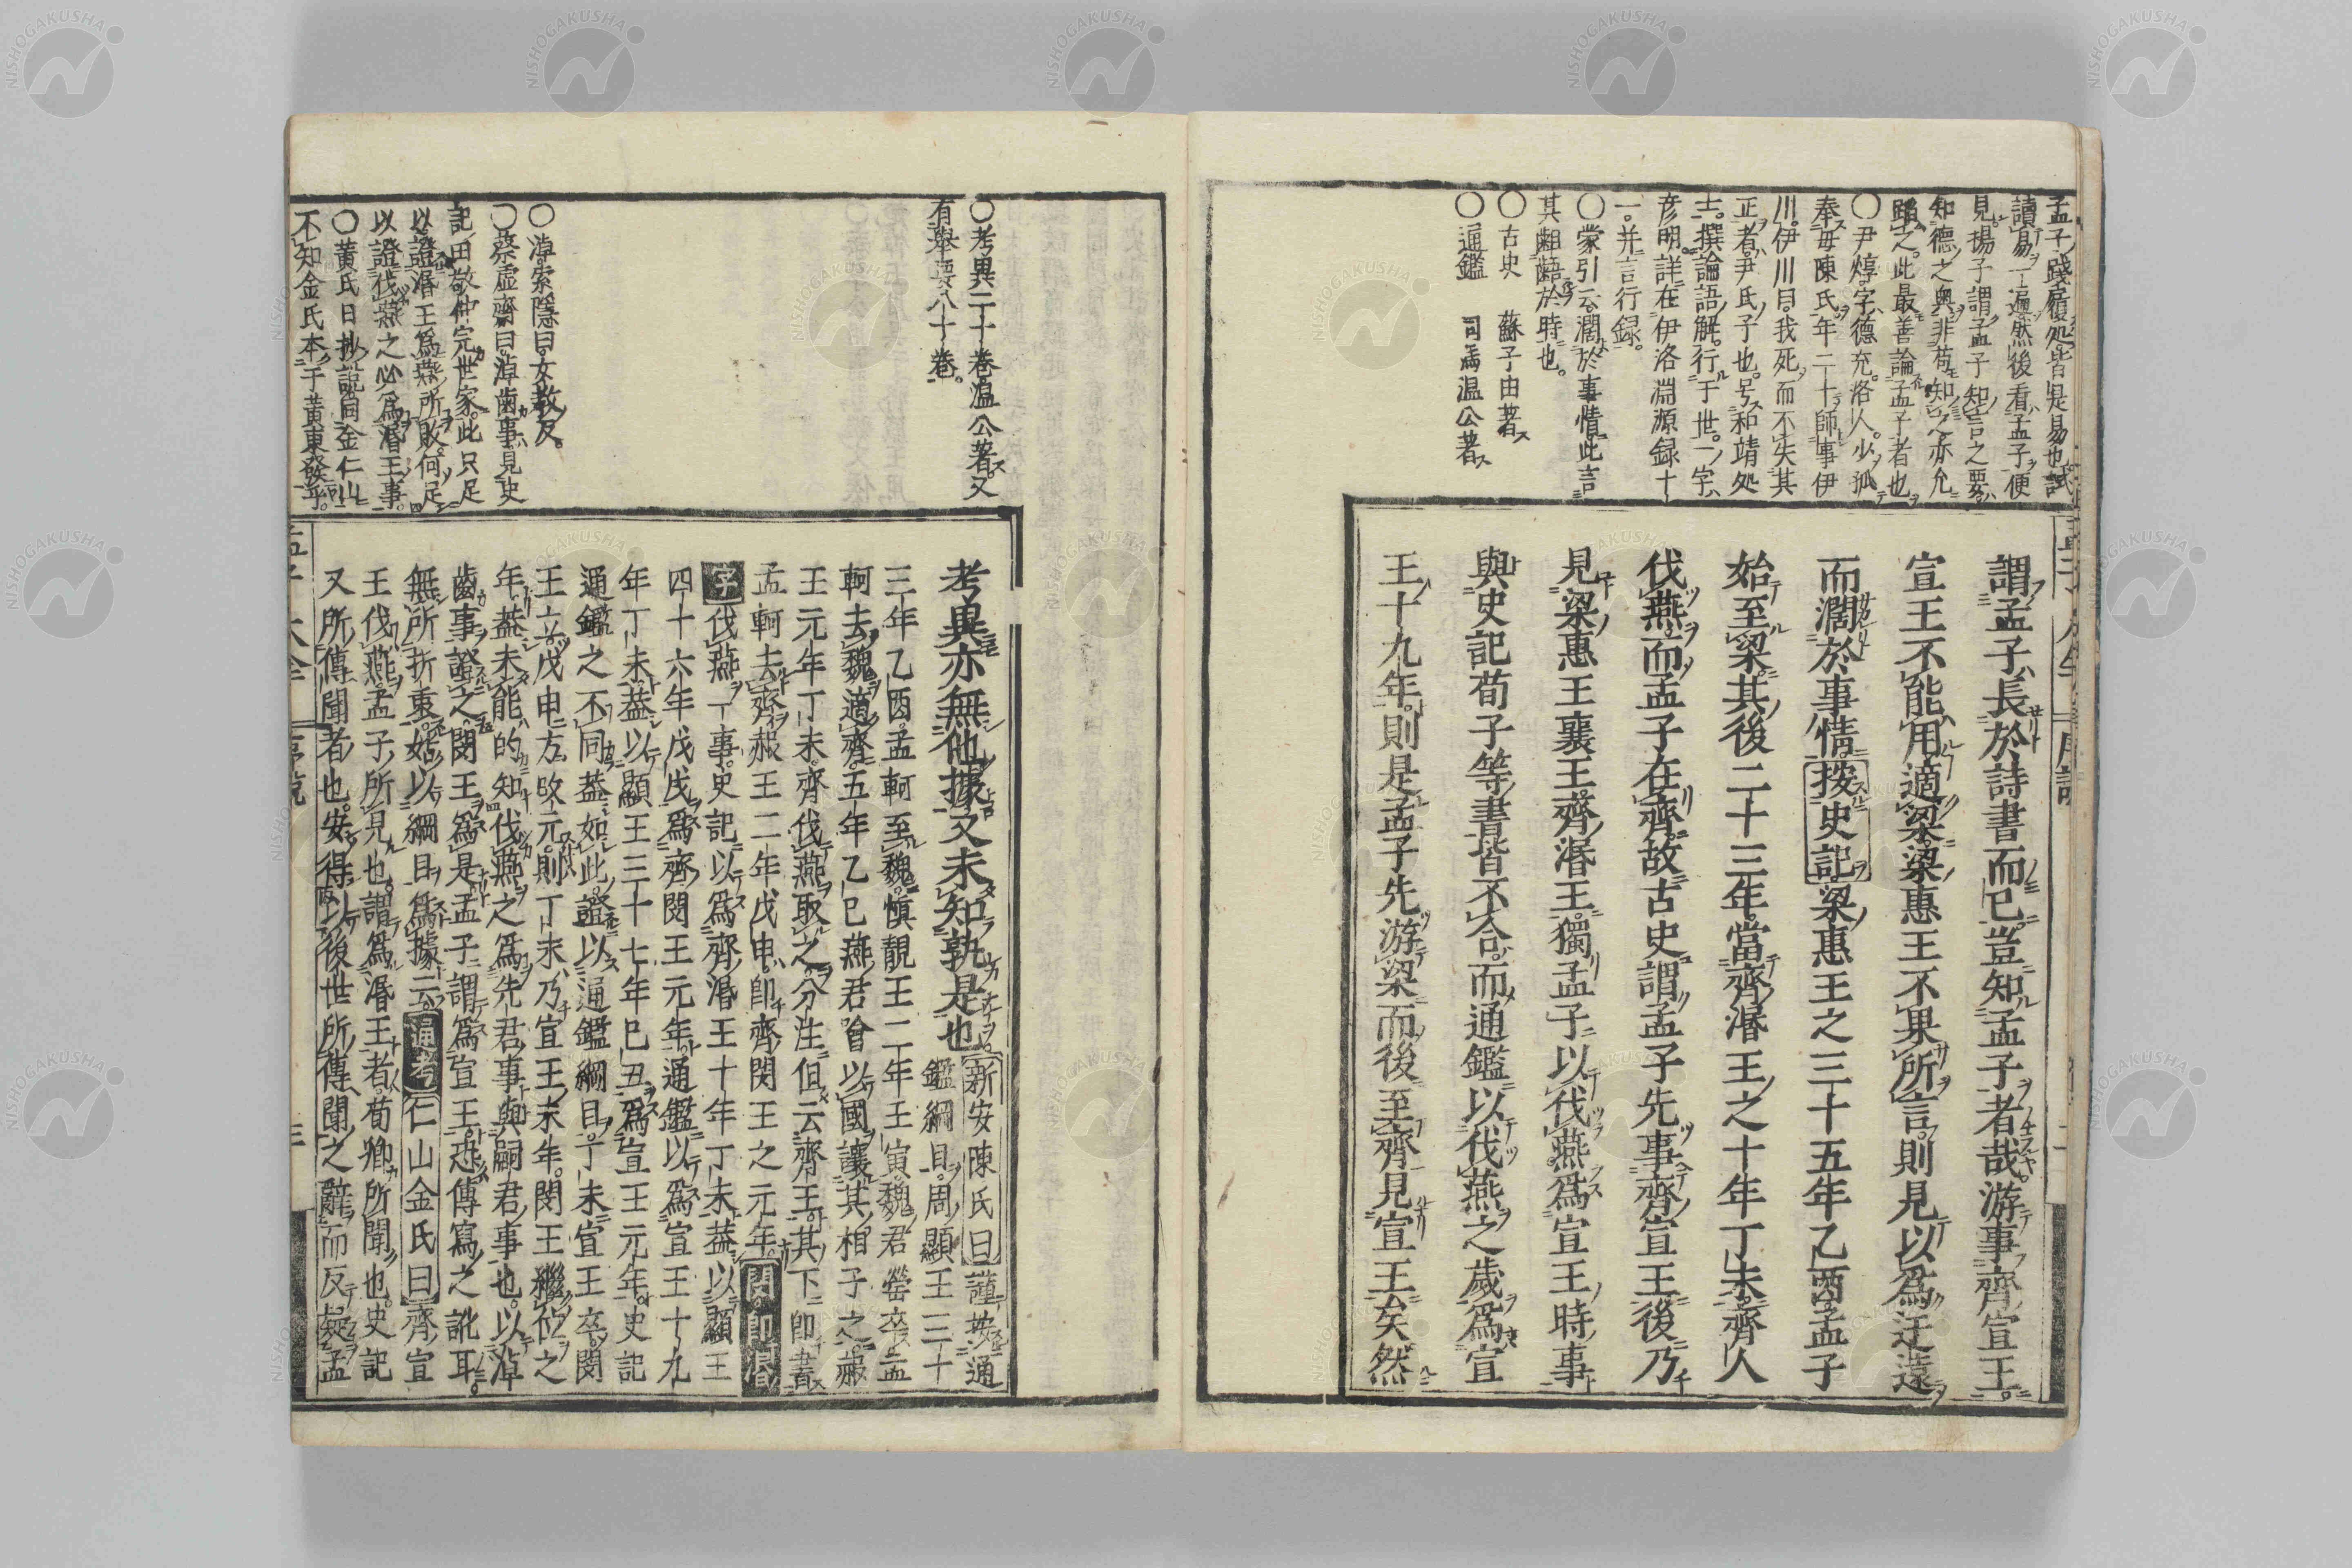 孟子踐履処皆是易也試
讀易一遍然後看孟子便
見揚子謂孟子知言之要
知德之奧非苟知之亦允
蹈之此最善論孟子者也
〇尹焞字德充洛人少孤
奉母陳氏年二十師事伊
川伊川曰我死而不失其
正者尹氏子也号和靖処
士撰論語解行于世一字
彦明詳在伊洛淵源録十
一并言行録
〇蒙引云濶於事情此言
其齟齬於時也
〇古史 蘇子由著
〇通鑑 司馬温公著
謂孟子長於詩書而已豈知孟子者哉游事齊宣王
宣王不能用適梁梁惠王不果所言則見以爲迂遠
而濶於事情按史記梁惠王之三十五年乙酉孟子
始至梁其後二十三年當齊湣王之十年丁未齊人
伐燕而孟子在齊故古史謂孟子先事齊宣王後乃
見梁惠王襄王齊湣王獨孟子以伐燕爲宣王時事
與史記荀子等書皆不合而通鑑以伐燕之歲爲宣
王十九年則是孟子先游梁而後至齊見宣王矣然
〇考異三十卷温公著又
有舉要八十卷
〇淖索隱曰女教反
〇蔡虚齋曰淖齒事見史
記田敬仲完世家此只足
以證湣王爲燕所敗何足
以證伐燕之必爲湣王事
〇黄氏日抄説同金仁山
不知金氏本于黄東發乎
考異亦無他據又未知孰是也新安陳氏曰謹按通
鑑綱目周顯王三十
三年乙酉孟軻至魏愼靚王二年王寅魏君罃卒孟
軻去魏適齊五年乙巳燕君噲以國讓其相子之赧
王元年丁未齊伐燕取之分注但云齊王其下即書
孟軻去齊赧王二年戊申即齊閔王之元年閔即湣
字伐燕一事史記以爲齊湣王十年丁未蓋以顯王
四十六年戊戌爲齊閔王元年通鑑以爲宣王十九
年丁未蓋以顯王三十七年巳丑爲宣王元年史記
通鑑之不同蓋如此證以通鑑綱目丁未宣王卒閔
王立戊申方改元則丁未乃宣王末年閔王繼位之
年蓋未能的知伐燕之爲先君事與嗣君事也以淖
齒事證之閔王爲是孟子謂爲宣王恐傳寫之訛耳
無所折衷姑以綱目爲據云通考仁山金氏曰齊宣
王伐燕孟子所見也謂爲湣王者荀卿所聞也史記
又所傳聞者也安得以後世所傳聞之辭而反疑孟